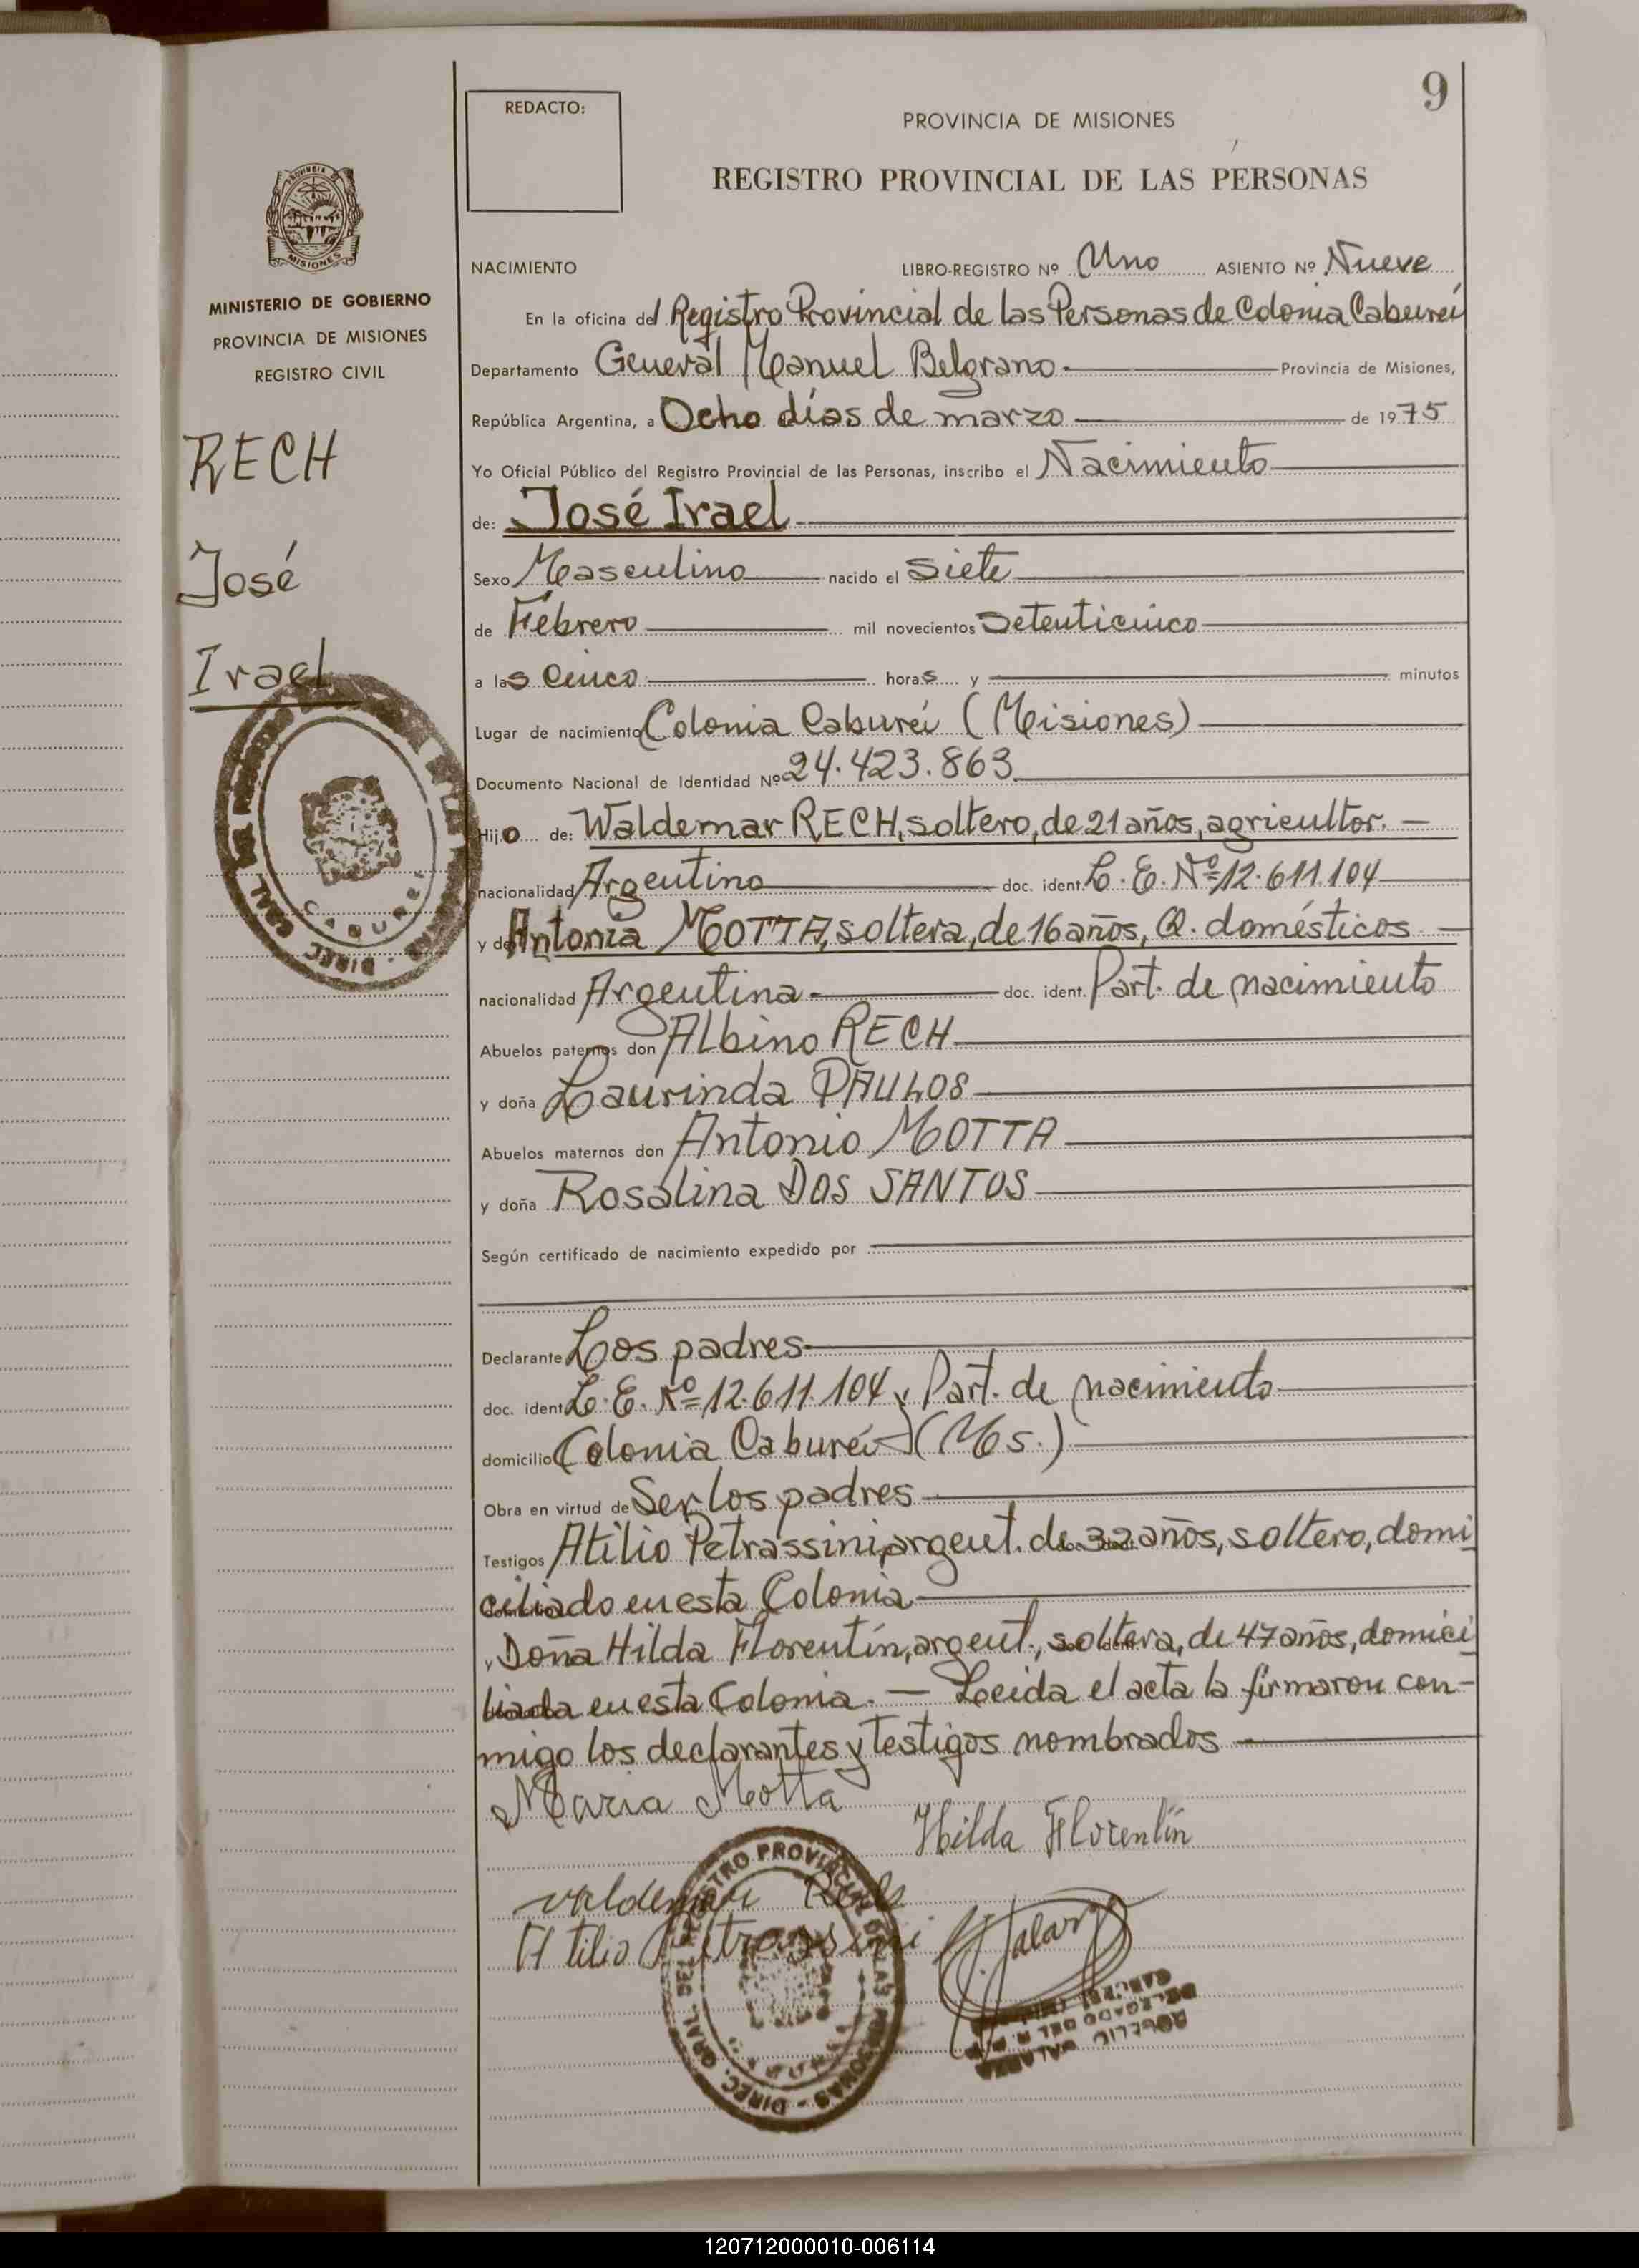 9
REDACTO:
PROVINCIA DE MISIONES
REGISTRO PROVINCIAL DE LAS PERSONAS
MISIONES
MINISTERIO DE GOBIERNO
PROVINCIA DE MISIONES
REGISTRO CIVIL
RECH
José
Irael
NACIMIENTO LIBRO-REGISTRO Nº Uno ASIENTO Nº Nueve
En la oficina del Registro Provincial de las Personas de Colonia Cabureí
Departamento General Manuel Belgrano.— Provincia de Misiones,
República Argentina, a Ocho días de marzo — de 1975
Yo Oficial Público del Registro Provincial de las Personas, inscribo el Nacimiento
de: José Irael
Sexo Masculino nacido el Siete
de Febrero mil novecientos Setenticinco
a las Cinco horas y minutos
Lugar de nacimiento Colonia Cabureí (Misiones)
Documento Nacional de Identidad Nº 24.423.863
Hijo de: Waldemar RECH, soltero, de 21 años, agricultor. —
nacionalidad Argentino doc. ident. L. E. Nº 12.611.104
y de Antonia MOTTA, soltera, de 16 años, Q. domésticos —
nacionalidad Argentina.— doc. ident. Part. de nacimiento
Abuelos paternos don Albino RECH
y doña Laurinda PAULOS
Abuelos maternos don Antonio MOTTA
y doña Rosalina DOS SANTOS
Según certificado de nacimiento expedido por
Declarante Los padres
doc. ident. L. E. Nº 12.611.104 y Part. de nacimiento
domicilio Colonia Cabureí (Ms.)
Obra en virtud de Ser los padres
Testigos Atilio Petrassini, argent. de 32 años, soltero, domi
ciliado en esta Colonia
y Doña Hilda Florentín, argent., soltera, de 47 años, domici
liada en esta Colonia. — Leida el acta la firmaron con-
migo los declarantes y testigos nombrados —
Maria Motta
Hilda Florentín
Valdemar Rech
Atilio Petrassini
120712000010-006114